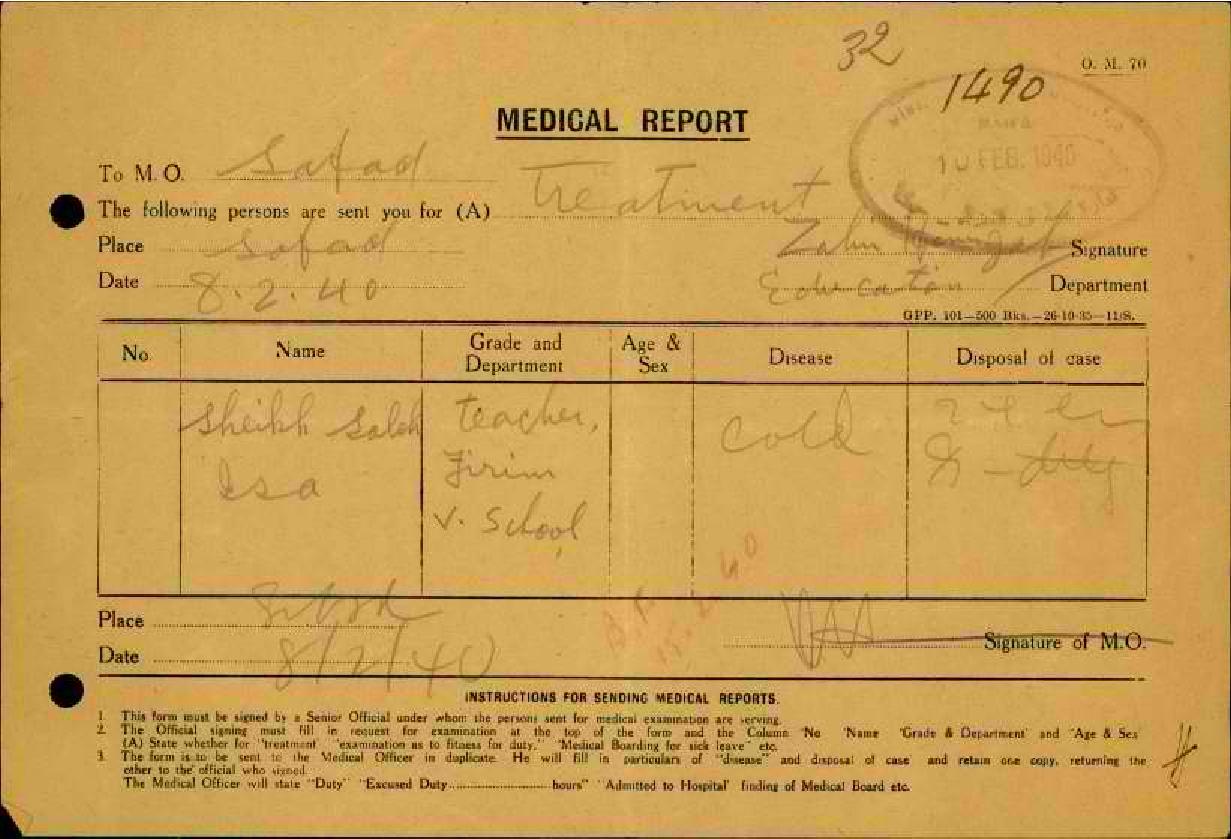 32
O. M. 70
1490
MEDICAL REPORT
10 FEB. 1940
To M. O. Safad
The following persons are sent you for (A) Treatment
Place Safad
Zahi Signature
Date 8.2.40
Education Department
GPP. 101—500 Bks.—26-10-35—11/S.
No. Name Grade and Department Age & Sex Disease Disposal of case
Sheikh Saleh teacher, Cold
Isa Firim duty
V. School
15.2.40
Place Safad
Signature of M.O.
Date 8/2/40
INSTRUCTIONS FOR SENDING MEDICAL REPORTS.
1. This form must be signed by a Senior Official under whom the persons sent for medical examination are serving.
2. The Official signing must fill in request for examination at the top of the form and the Column 'No 'Name 'Grade & Department' and 'Age & Sex'
(A) State whether for "treatment" "examination as to fitness for duty." "Medical Boarding for sick leave" etc.
3. The form is to be sent to the Medical Officer in duplicate. He will fill in particulars of "disease" and disposal of case and retain one copy, returning the
other to the official who signed.
The Medical Officer will state "Duty" "Excused Duty..............................hours" "Admitted to Hospital" finding of Medical Board etc.